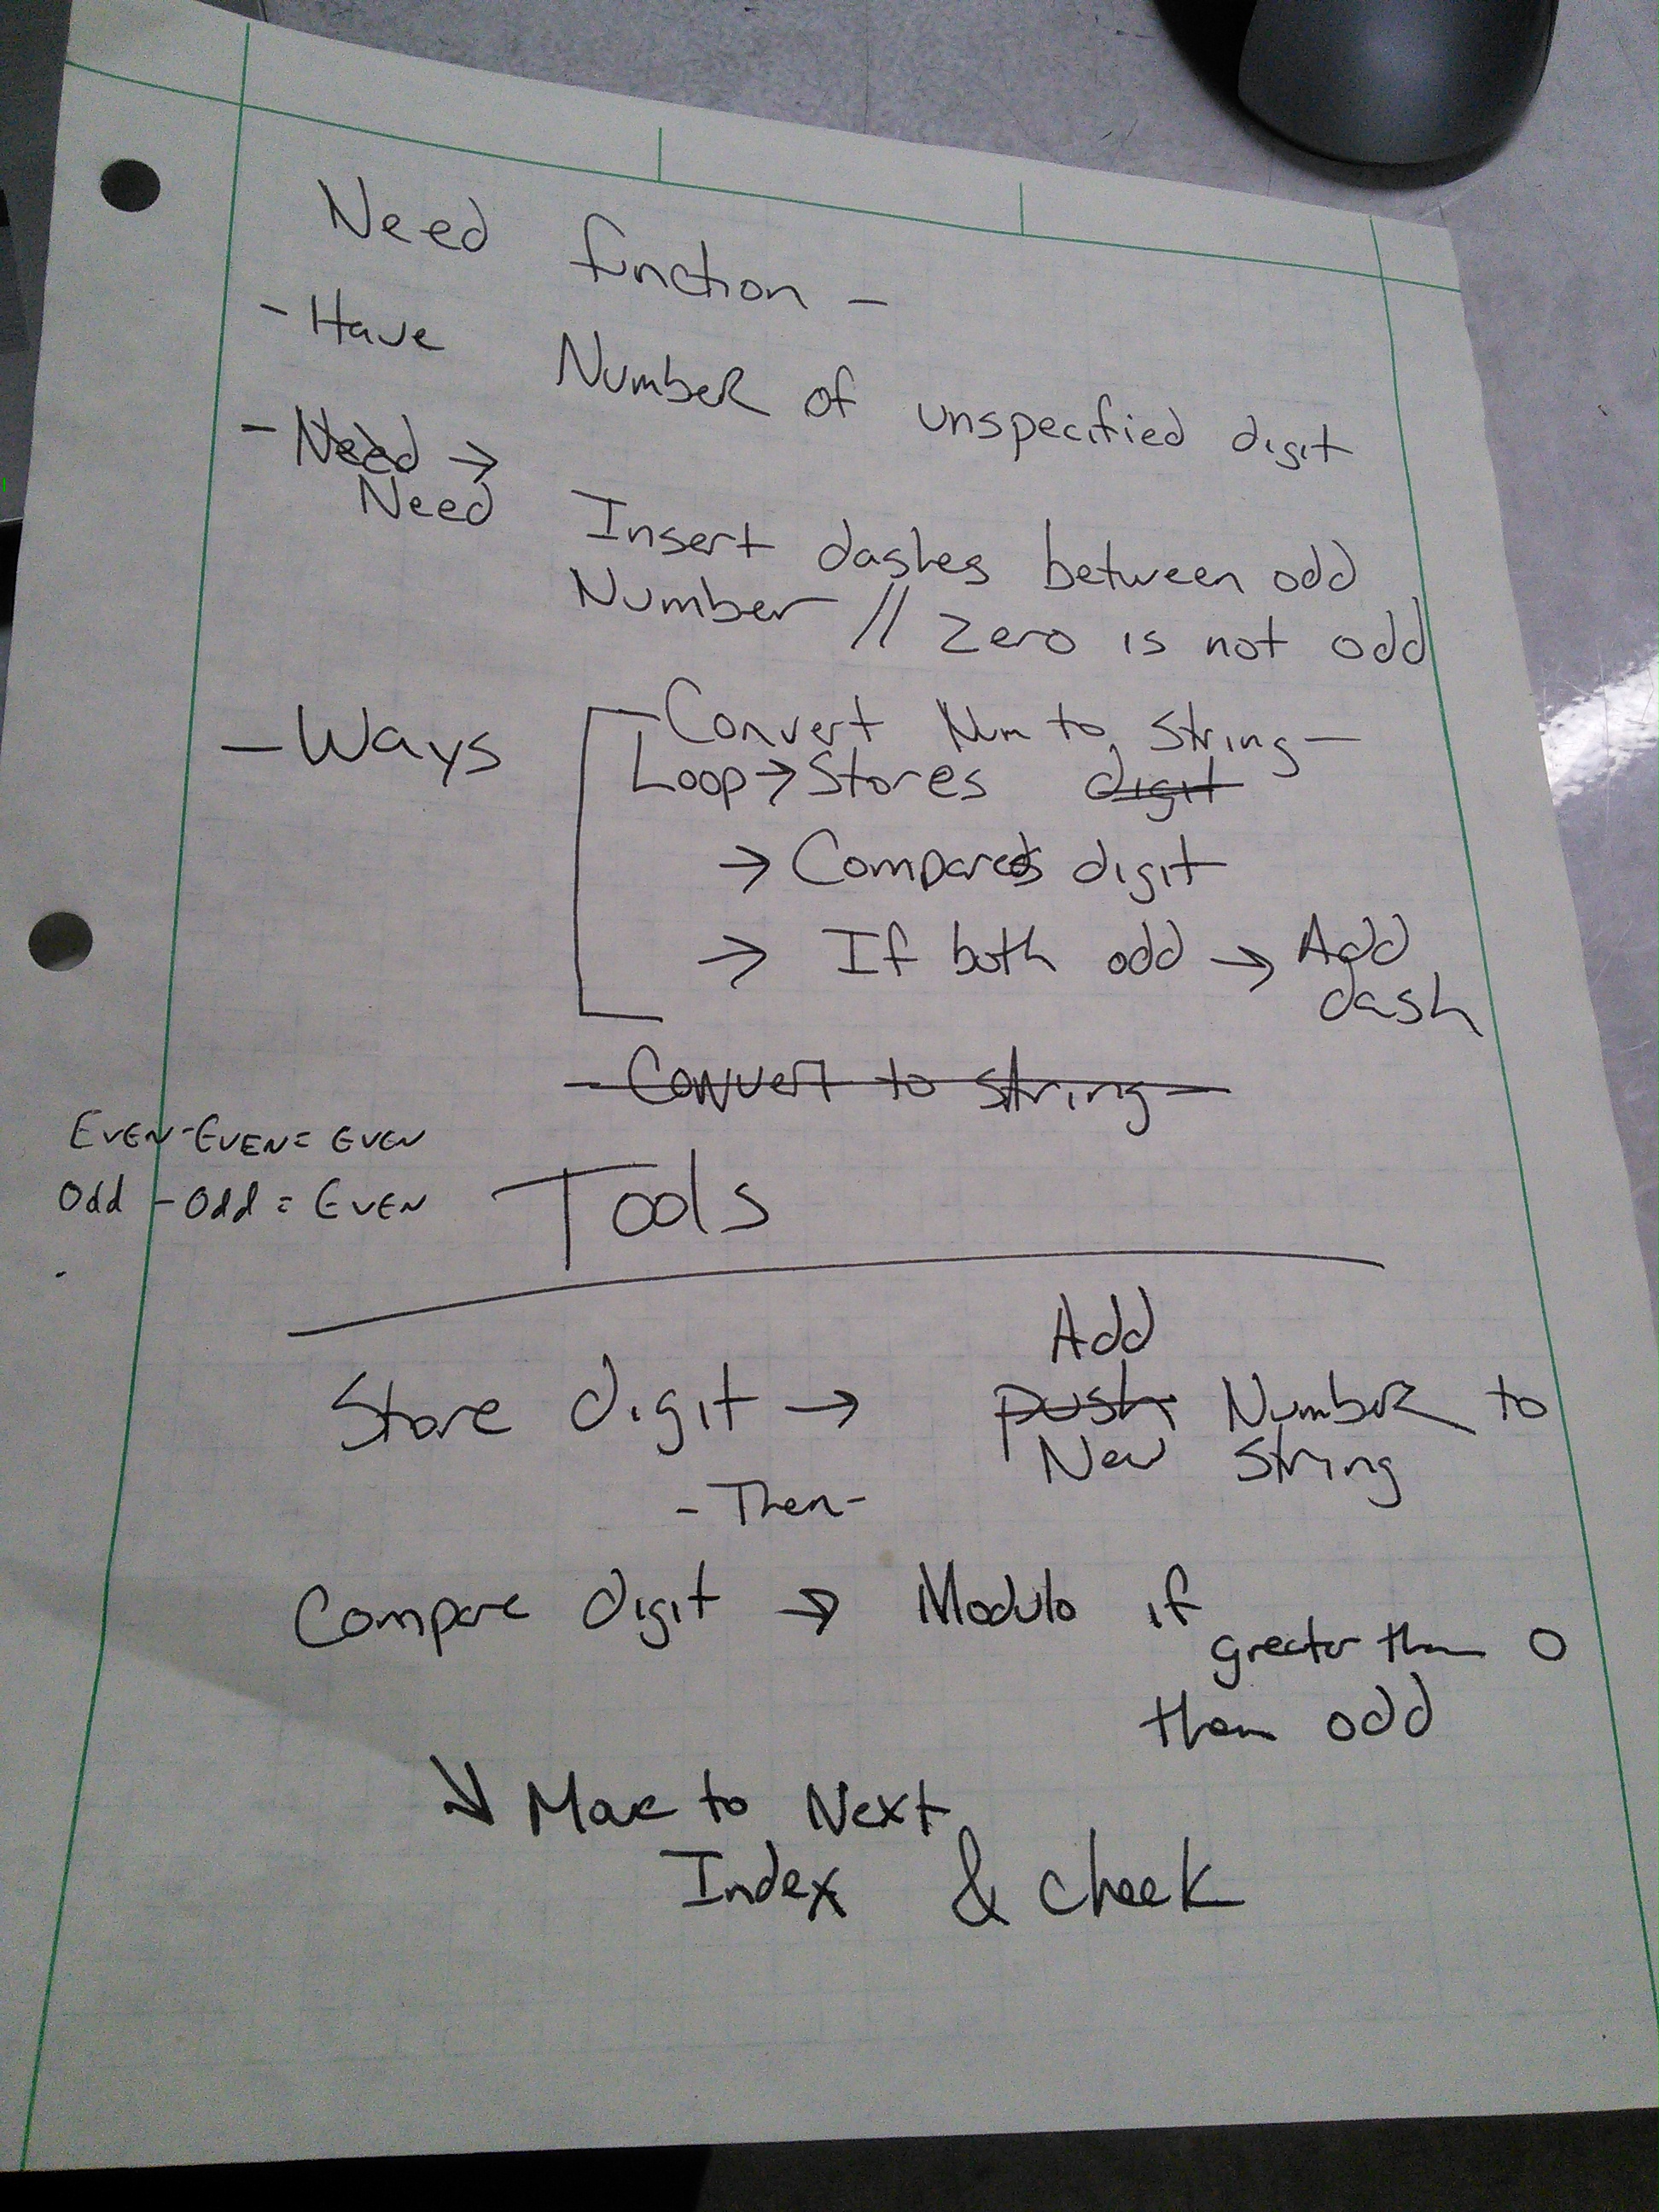 Need function -
- Have Number of unspecified digit
- Need →
Need Insert dashes between odd
Number // Zero is not odd
- Ways - Convert Num to string -
Loop → Stores digit
→ Compares digit
→ If both odd → Add
dash
- Convert to string -
EVEN - EVEN = EVEN
Odd - Odd = EVEN
Tools
Store digit → Add
push Number to
New string
- Then -
Compare digit → Modulo if
greater than 0
then odd
↓ Move to Next
Index & check